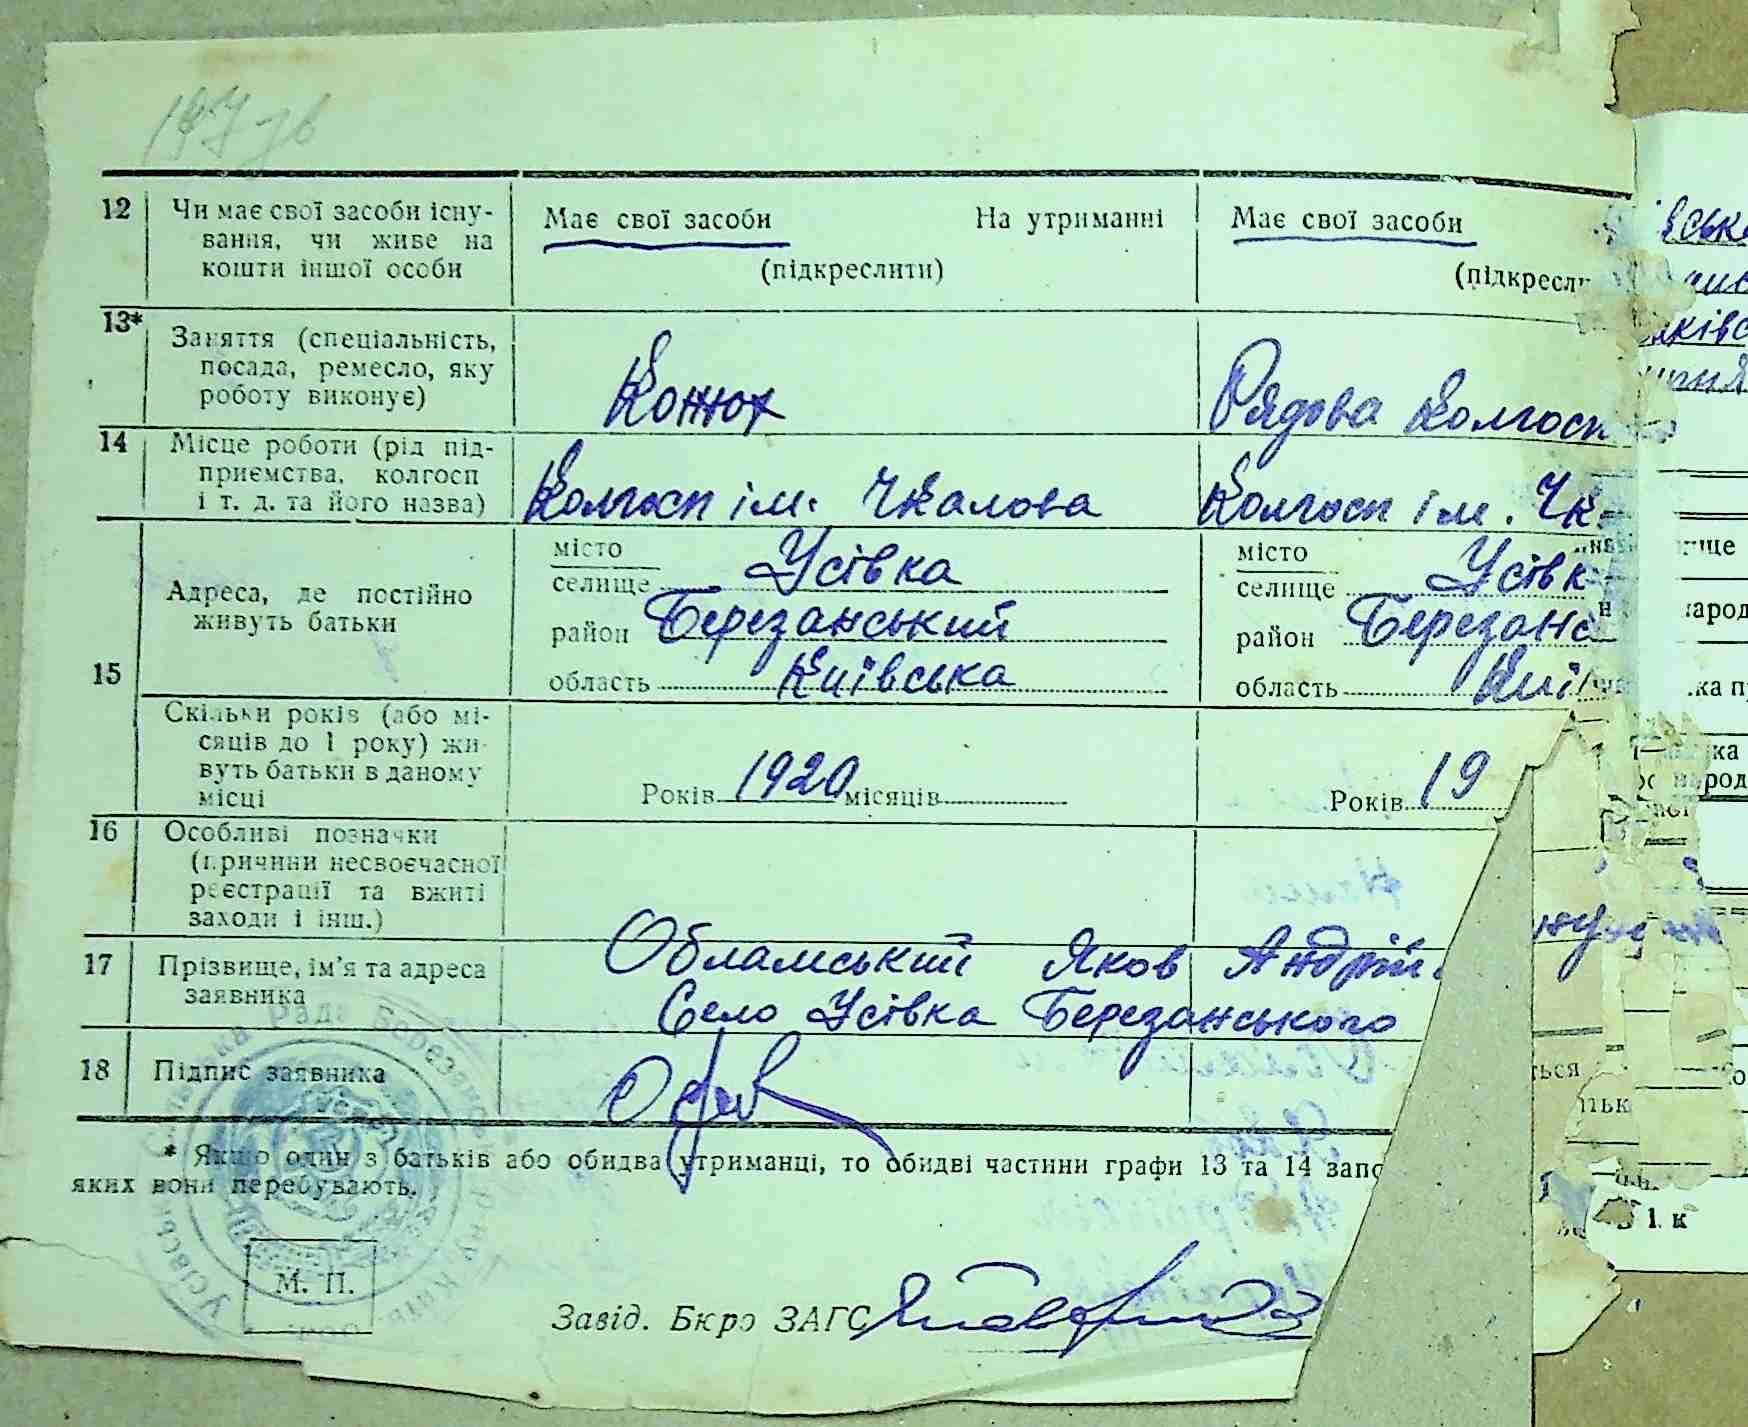 12 Чи має свої засоби існу- Має свої засоби На утриманні Має свої засоби
вання, чи живе на
кошти іншої особи (підкреслити) (підкресли
13* Заняття (спеціальність,
посада, ремесло, яку
роботу виконує) Конюх Рядова колгосп
14 Місце роботи (рід під-
приємства, колгосп
і т. д. та його назва) Колгосп ім. Чкалова Колгосп ім. Чк
15 Адреса, де постійно
живуть батьки
місто
селище Усівка
район Березанський
область Київська
місто
селище Усівк
район Березанс
область Киї
Скільки років (або мі-
сяців до 1 року) жи-
вуть батьки в даному
місці Років 1920 місяців Років 19
16 Особливі позначки
(причини несвоєчасної
реєстрації та вжиті
заходи і інш.)
17 Прізвище, ім'я та адреса
заявника
Обламський Яков Андрій
Село Усівка Березанського
18 Підпис заявника
* Якщо один з батьків або обидва утриманці, то обидві частини графи 13 та 14 запо
яких вони перебувають.
М. П.
Завід. Бюро ЗАГС